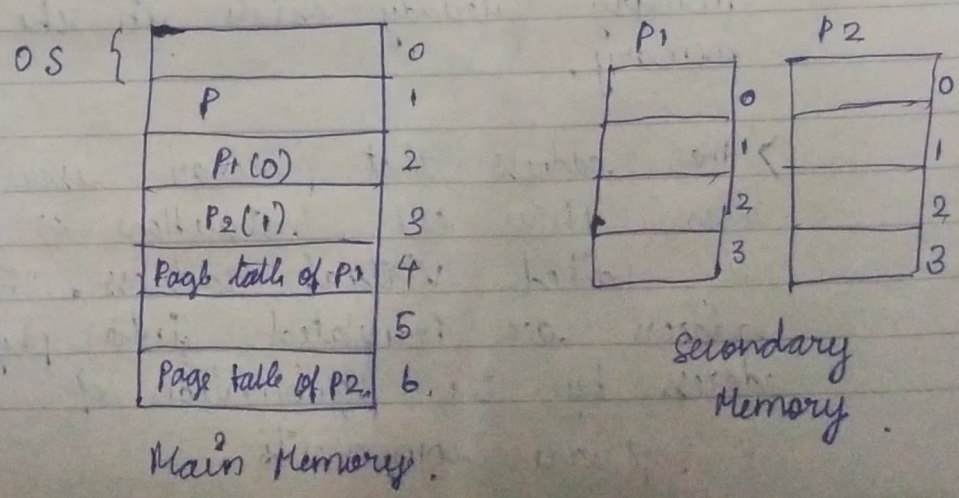 OS { 0
P 1
P1(0) 2
P2(1). 3
Page table of P1 4
5
Page table of P2. 6.
Main Memory.
P1
0
1
2
3
P2
0
1
2
3
Secondary
Memory.